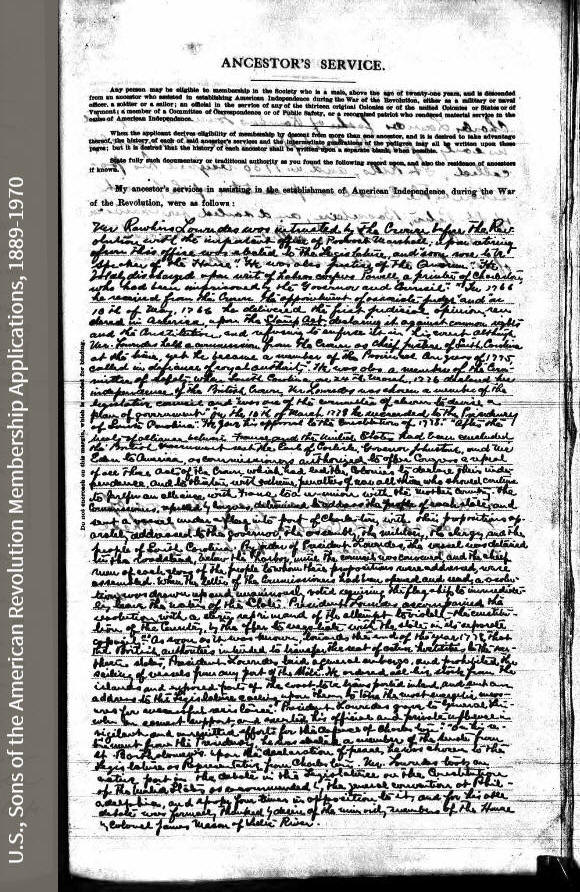 U.S., Sons of the American Revolution Membership Applications, 1889-1970
ANCESTOR'S SERVICE.
Any person may be eligible to membership in the Society who is a male, above the age of twenty-one years, and is descended
from an ancestor who assisted in establishing American Independence during the War of the Revolution, either as a military or naval
officer, a soldier or a sailor; an official in the service of any of the thirteen original Colonies or of the united Colonies or States or of
Vermont; a member of a Committee of Correspondence or of Public Safety, or a recognized patriot who rendered material service in the
cause of American Independence.
When the applicant derives eligibility of membership by descent from more than one ancestor, and it is desired to take advantage
thereof, the history of each of said ancestor's services and the intermediate generations of the pedigree may all be written upon these
pages; but it is desired that the history of each ancestor shall be written upon a separate blank, when possible.
State fully such documentary or traditional authority as you found the following record upon, and also the residence of ancestors
if known.
My ancestor's services in assisting in the establishment of American Independence, during the War
of the Revolution, were as follows:
Do not encroach on this margin, which is needed for binding.
Mr Rawlins Lowndes was intrusted by The Crown before the Rev-
olution, with the important office of Provost Marshall; upon retiring
from this office was elected to the Legislature, and soon rose to be
Speaker of the House. He was also Justice of the Quorum. He
discharged upon writ of habeas corpus Powell, a printer of Charleston,
who had been imprisoned by the Governor and Council. In 1766
he received from the Crown the appointment of associate judge and on
13th of May, 1766 he delivered the first judicial opinion, ren-
dered in America, upon the Stamp Act, declaring it against common rights
and the Constitution, and refusing to enforce it in his court. Although
Mr. Lowndes held a commission from the Crown as chief justice of South Carolina
at the time, yet he became a member of the Provincial Congress of 1775,
called in defiance of royal authority. He was also a member of the Com-
mittee of Safety when South Carolina on 26th March, 1776 declared her
independence of the British Crown. Mr Lowndes was chosen a member of the
legislative council and was one of the committee of eleven to devise a
plan of government. On the 10th of March 1778 he succeeded to the Presidency
of South Carolina. He gave his approval to the Constitution of 1778. After the
treaty of alliance between France and the United States had been concluded
the British Government sent the Earl of Carlisle, Governor Johnstone, and Mr
Eden to America, as commissioners authorized to offer Congress a repeal
of all those Acts of the Crown which had led the Colonies to declare their inde-
pendence, and to threaten with extreme penalties of war all those who should continue
to prefer an alliance with France to a union with the mother country. The
Commissioners, repelled by Congress, determined to address the people of each state, and
sent a vessel under a flag into port of Charleston, with their propositions sep-
arately addressed to the governor, the assembly, the military, the clergy, and the
people of South Carolina. By order of President Lowndes, the vessel was detained
in the roadstead, below the harbor, until the council was convened and the chief
men of each class of the people to whom these propositions were addressed, were
assembled. When the letter of the Commissioners had been opened and read, a resolu-
tion was drawn up and unanimously voted requiring the flag-ship to immediate-
ly leave the waters of the State. President Lowndes accompanied the
resolution with a sharp reprimand of the attempt to violate the constitu-
tion of the Country, by the offer to negotiate with the state in its separate
capacity. As soon as it was known, towards the end of the year 1778, that
the British authorities intended to transfer the seat of active hostilities to the sou-
thern states, President Lowndes laid a general embargo, and prohibited the
sailing of vessels from any port of the State. He ordered all live stock from the
islands and exposed parts of the coast to be transported inland, and sent an
address to the Legislature calling upon them to take the most energetic meas-
ures for a successful resistance. President Lowndes gave to General Lin-
coln an earnest support, and exerted his official and private influence in
vigilant and unremitted efforts for the defence of Charleston. On his re-
tirement from the Presidency he was elected a member of the Senate from
St. Bartholomew's. Upon the declaration of peace, he was chosen to the
Legislature as Representative from Charleston. Mr. Lowndes took an
active part in the debate in the Legislature on the Constitution
of the United States as recommended by the general convention at Phil-
adelphia, and spoke four times in opposition to it, and for his able
debate was formally thanked by desire of the minority members of the House
by Colonel James Mason of Little River.